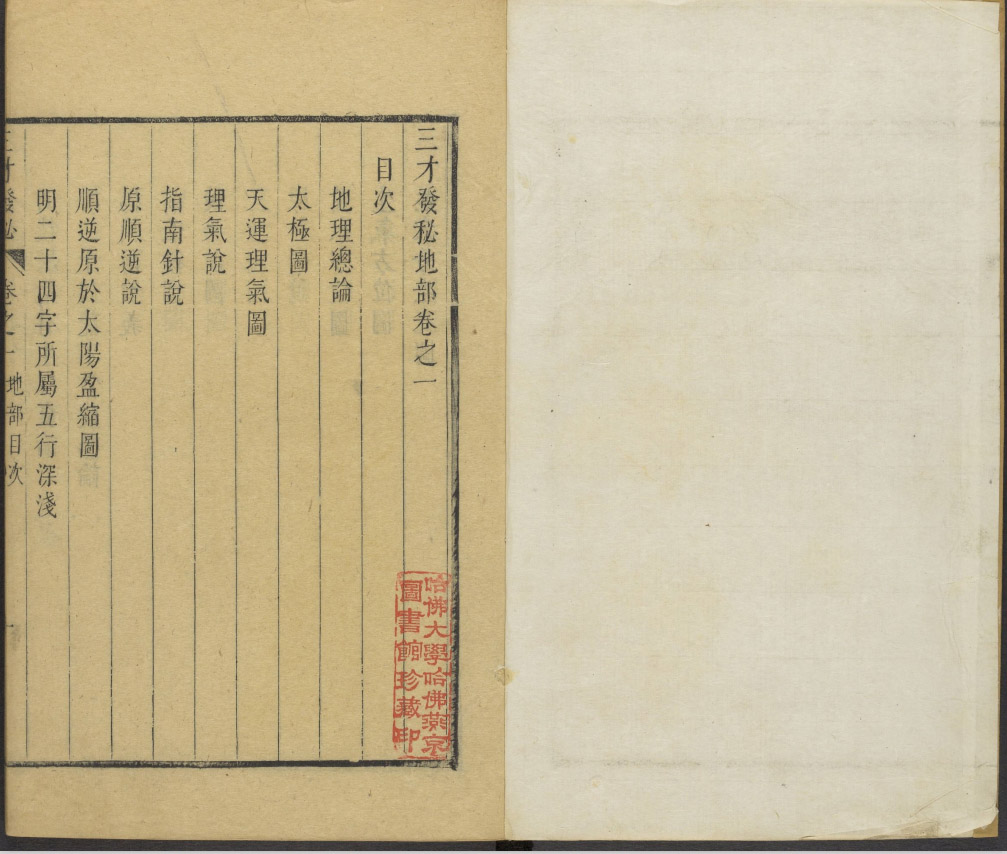 三才發秘地部卷之一
目次
地理總論
太極圖
天運理氣圖
理氣說
指南針說
原順逆說
順逆原於太陽盈縮圖
明二十四字所屬五行深淺
三才發秘 卷之一 地部目次
哈佛大學哈佛燕京
圖書館珍藏印